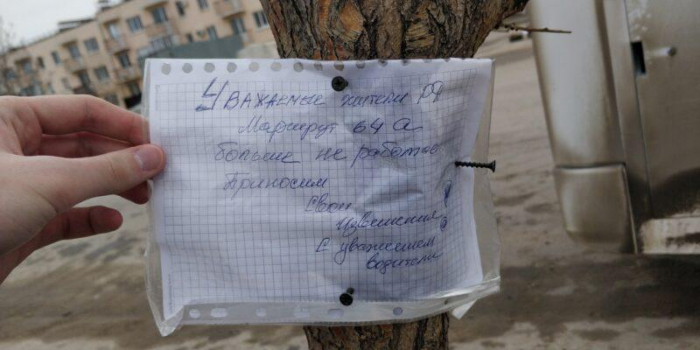 Уважаемые жители РП
Маршрут 64 а
больше не работае
Приносим
Свои
Извинения
С уважением
водители